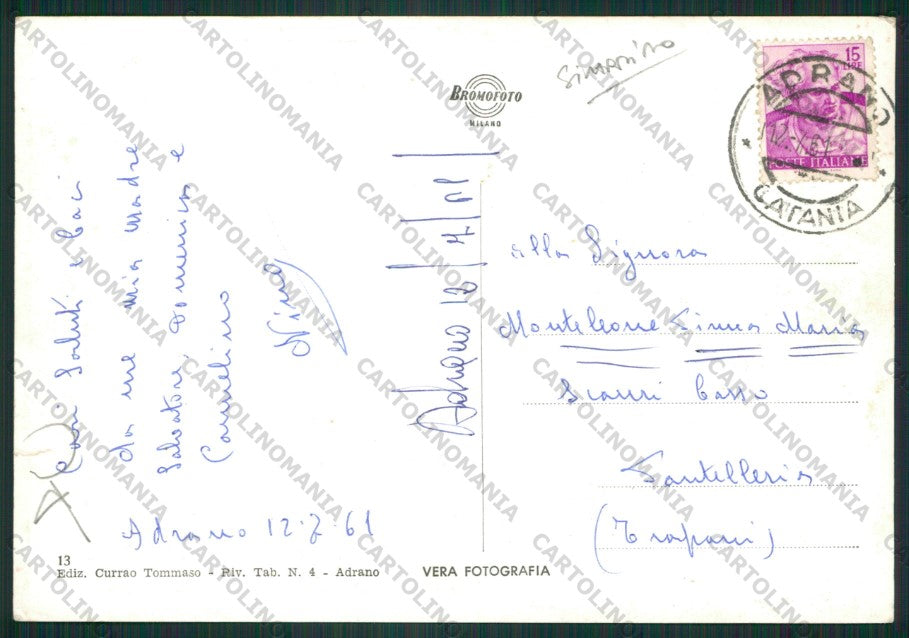 Simonino
15 LIRE
POSTE ITALIANE
ADRANO
CATANIA
BROMOFOTO
MILANO
Cari Saluti e baci
da me mia madre
Salvatore, Domenica e
Carmelino
Nino
Adrano 12/7/61
Adrano 12.7.61
alla Signora
Monteleone Maria
Scauri Basso
Pantelleria
(Trapani)
13
Ediz. Currao Tommaso - Riv. Tab. N. 4 - Adrano
VERA FOTOGRAFIA
CARTOLINOMANIA